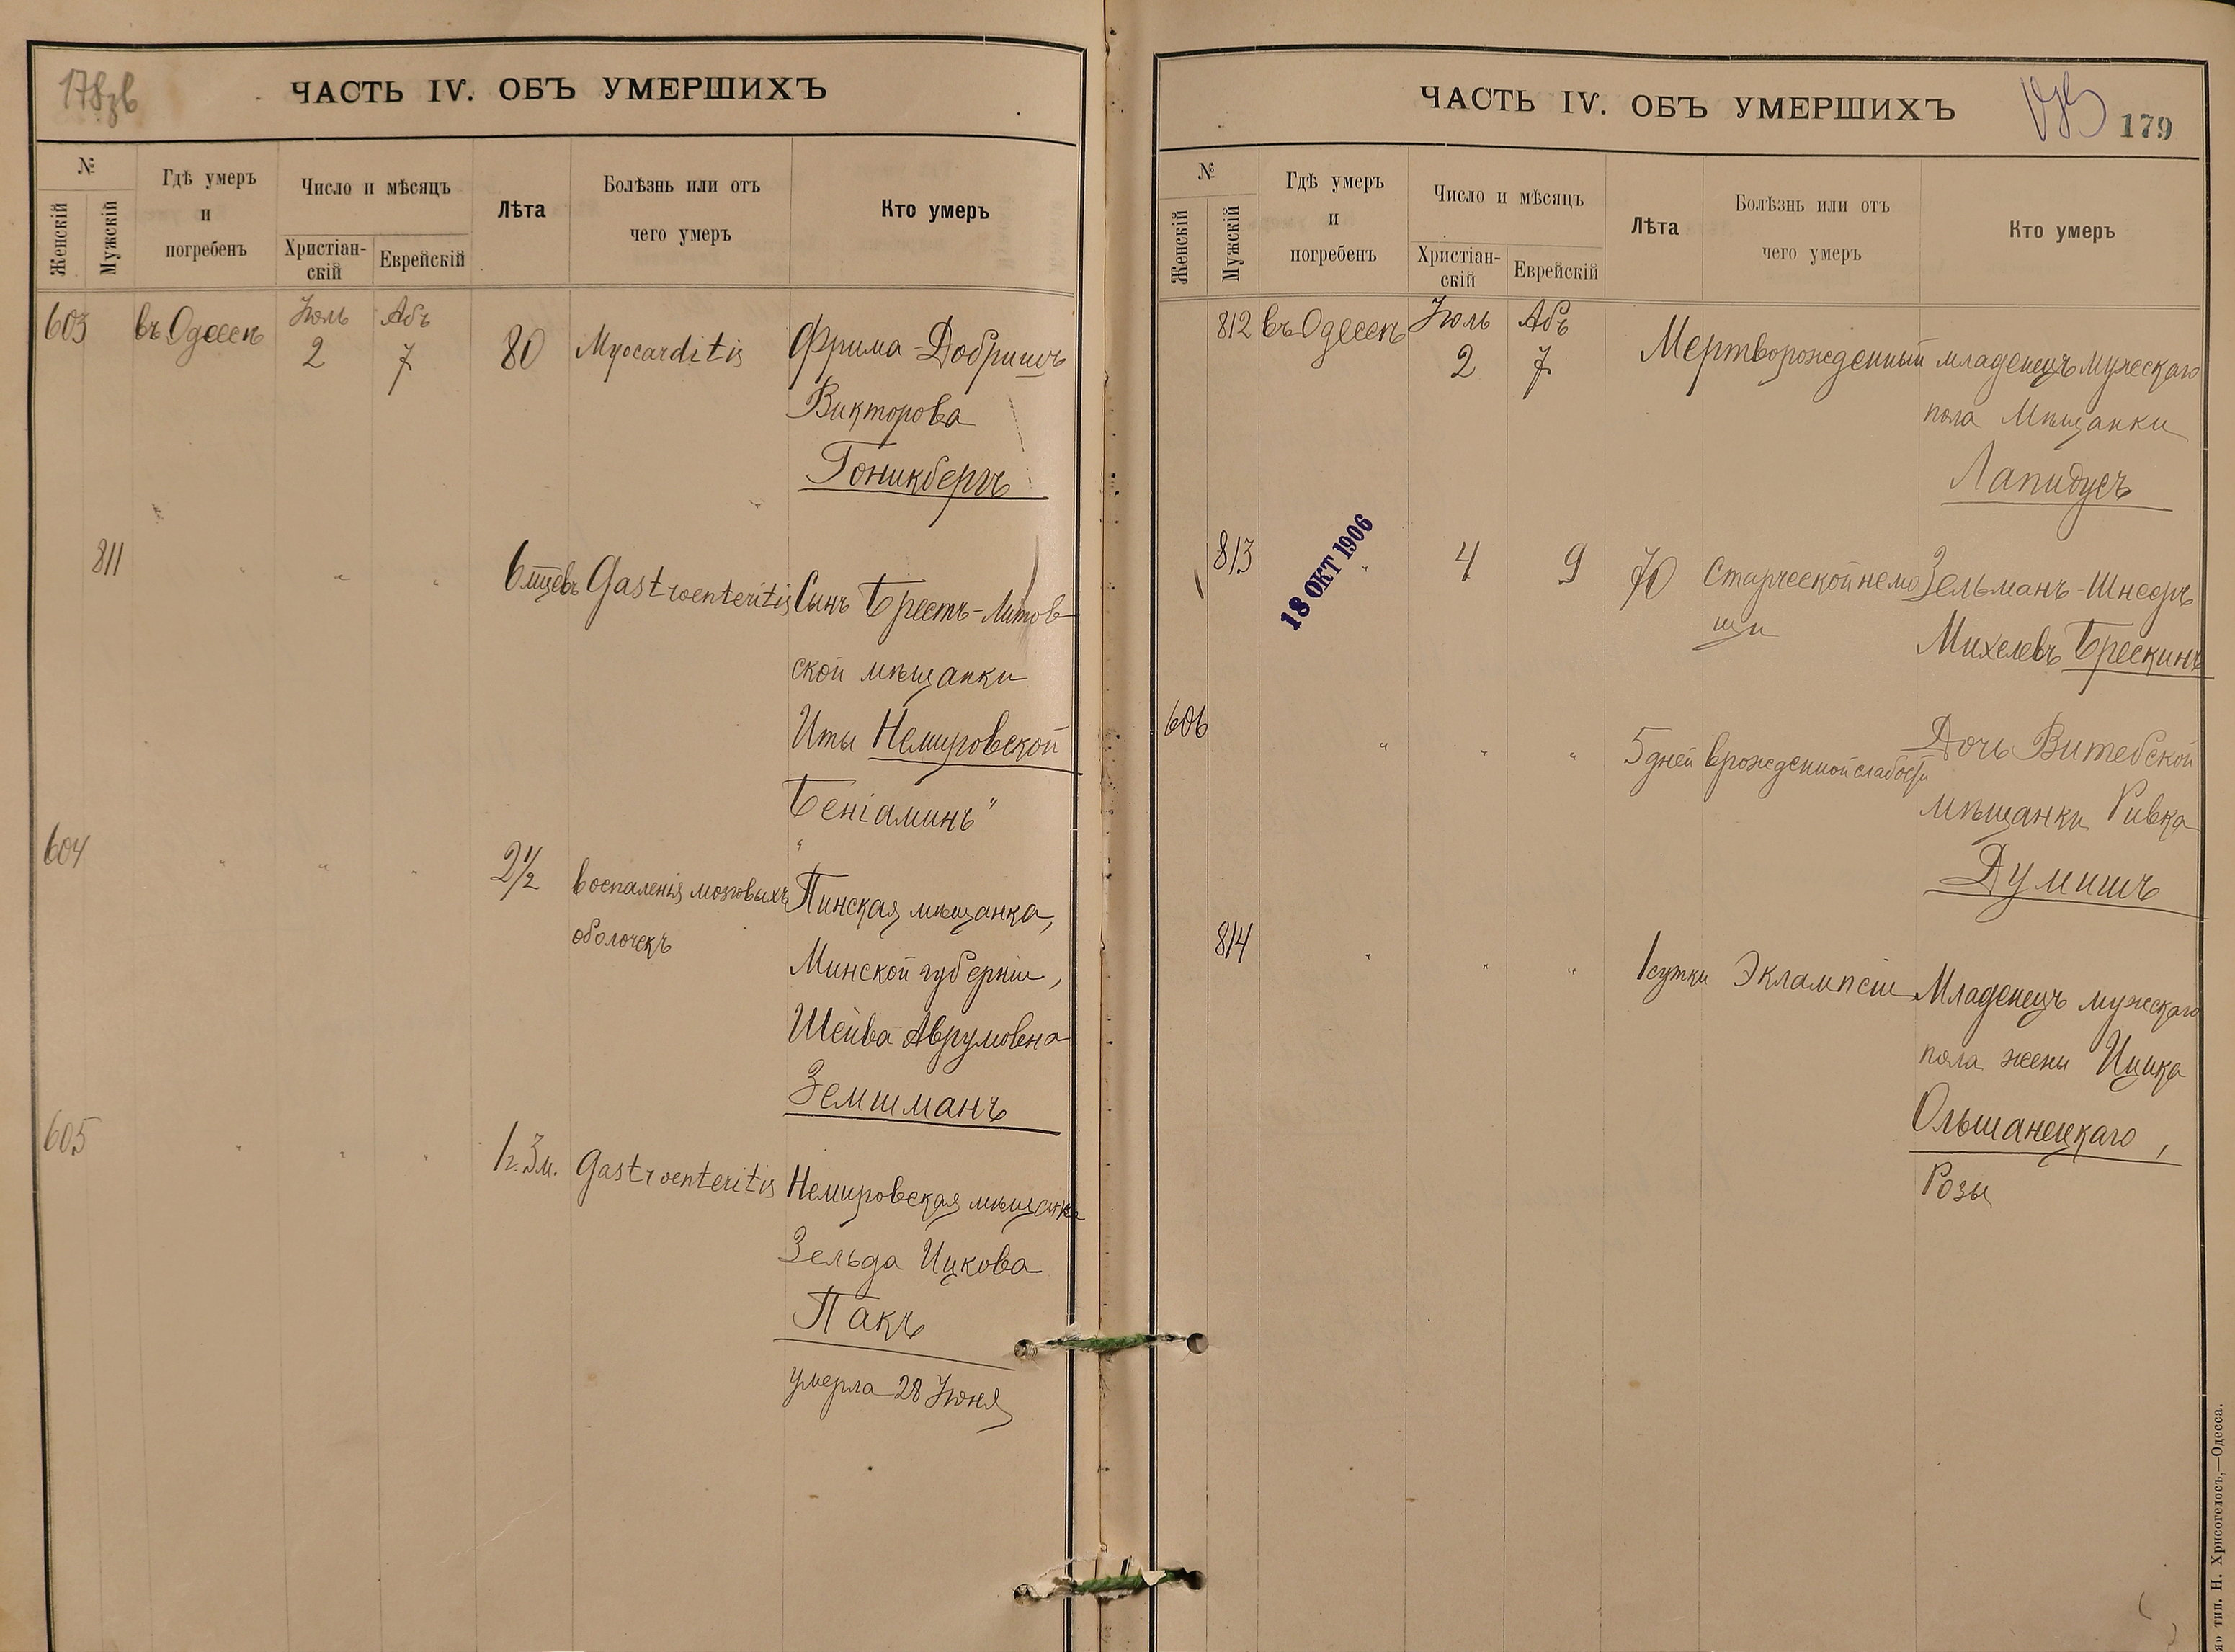 178 зв
ЧАСТЬ IV. ОБЪ УМЕРШИХЪ
№
Женскій
Мужскій
Гдѣ умеръ
и
погребенъ
Число и мѣсяцъ
Христіан-
скій
Еврейскій
Лѣта
Болѣзнь или отъ
чего умеръ
Кто умеръ
603 въ Одессѣ Іюль 2 Абъ 7 80 Myocarditis Фрима-Добришъ
Викторова
Гоникбергъ
811 " " " 6 мцевъ Gastroenteritis Сынъ Брестъ-Литов
ской мѣщанки
Иты Немировской
"Беніаминъ"
604 " " " 2 1/2 воспаленія мозговыхъ Пинская мѣщанка,
оболочекъ
Минской губерніи,
Шейва Аврумовна
Земшманъ
605 " " " 1 г. 3 м. Gastroenteritis Немировская мѣщанка
Зельда Ицкова
Пакъ
умерла 28 Іюня
ЧАСТЬ IV. ОБЪ УМЕРШИХЪ
179
№
Женскій
Мужскій
Гдѣ умеръ
и
погребенъ
Число и мѣсяцъ
Христіан-
скій
Еврейскій
Лѣта
Болѣзнь или отъ
чего умеръ
Кто умеръ
812 въ Одессѣ Іюль 2 Абъ 7 Мертворожденный младенецъ мужескаго
пола Мѣщанки
Лапидусъ
18 ОКТ 1906
813 " 4 9 70 Старческой немо Зельманъ-Шнееръ
щи
Михелевъ Брескинъ
606 " " " 5 дней врожденной слабости Дочь Витебской
мѣщанки Ривка
Думишъ
814 " " " 1 сутки Эклампсіи Младенецъ мужескаго
пола жены Ицика
Ольшанецкаго,
Розы
тип. Н. Хрисогелосъ,—Одесса.